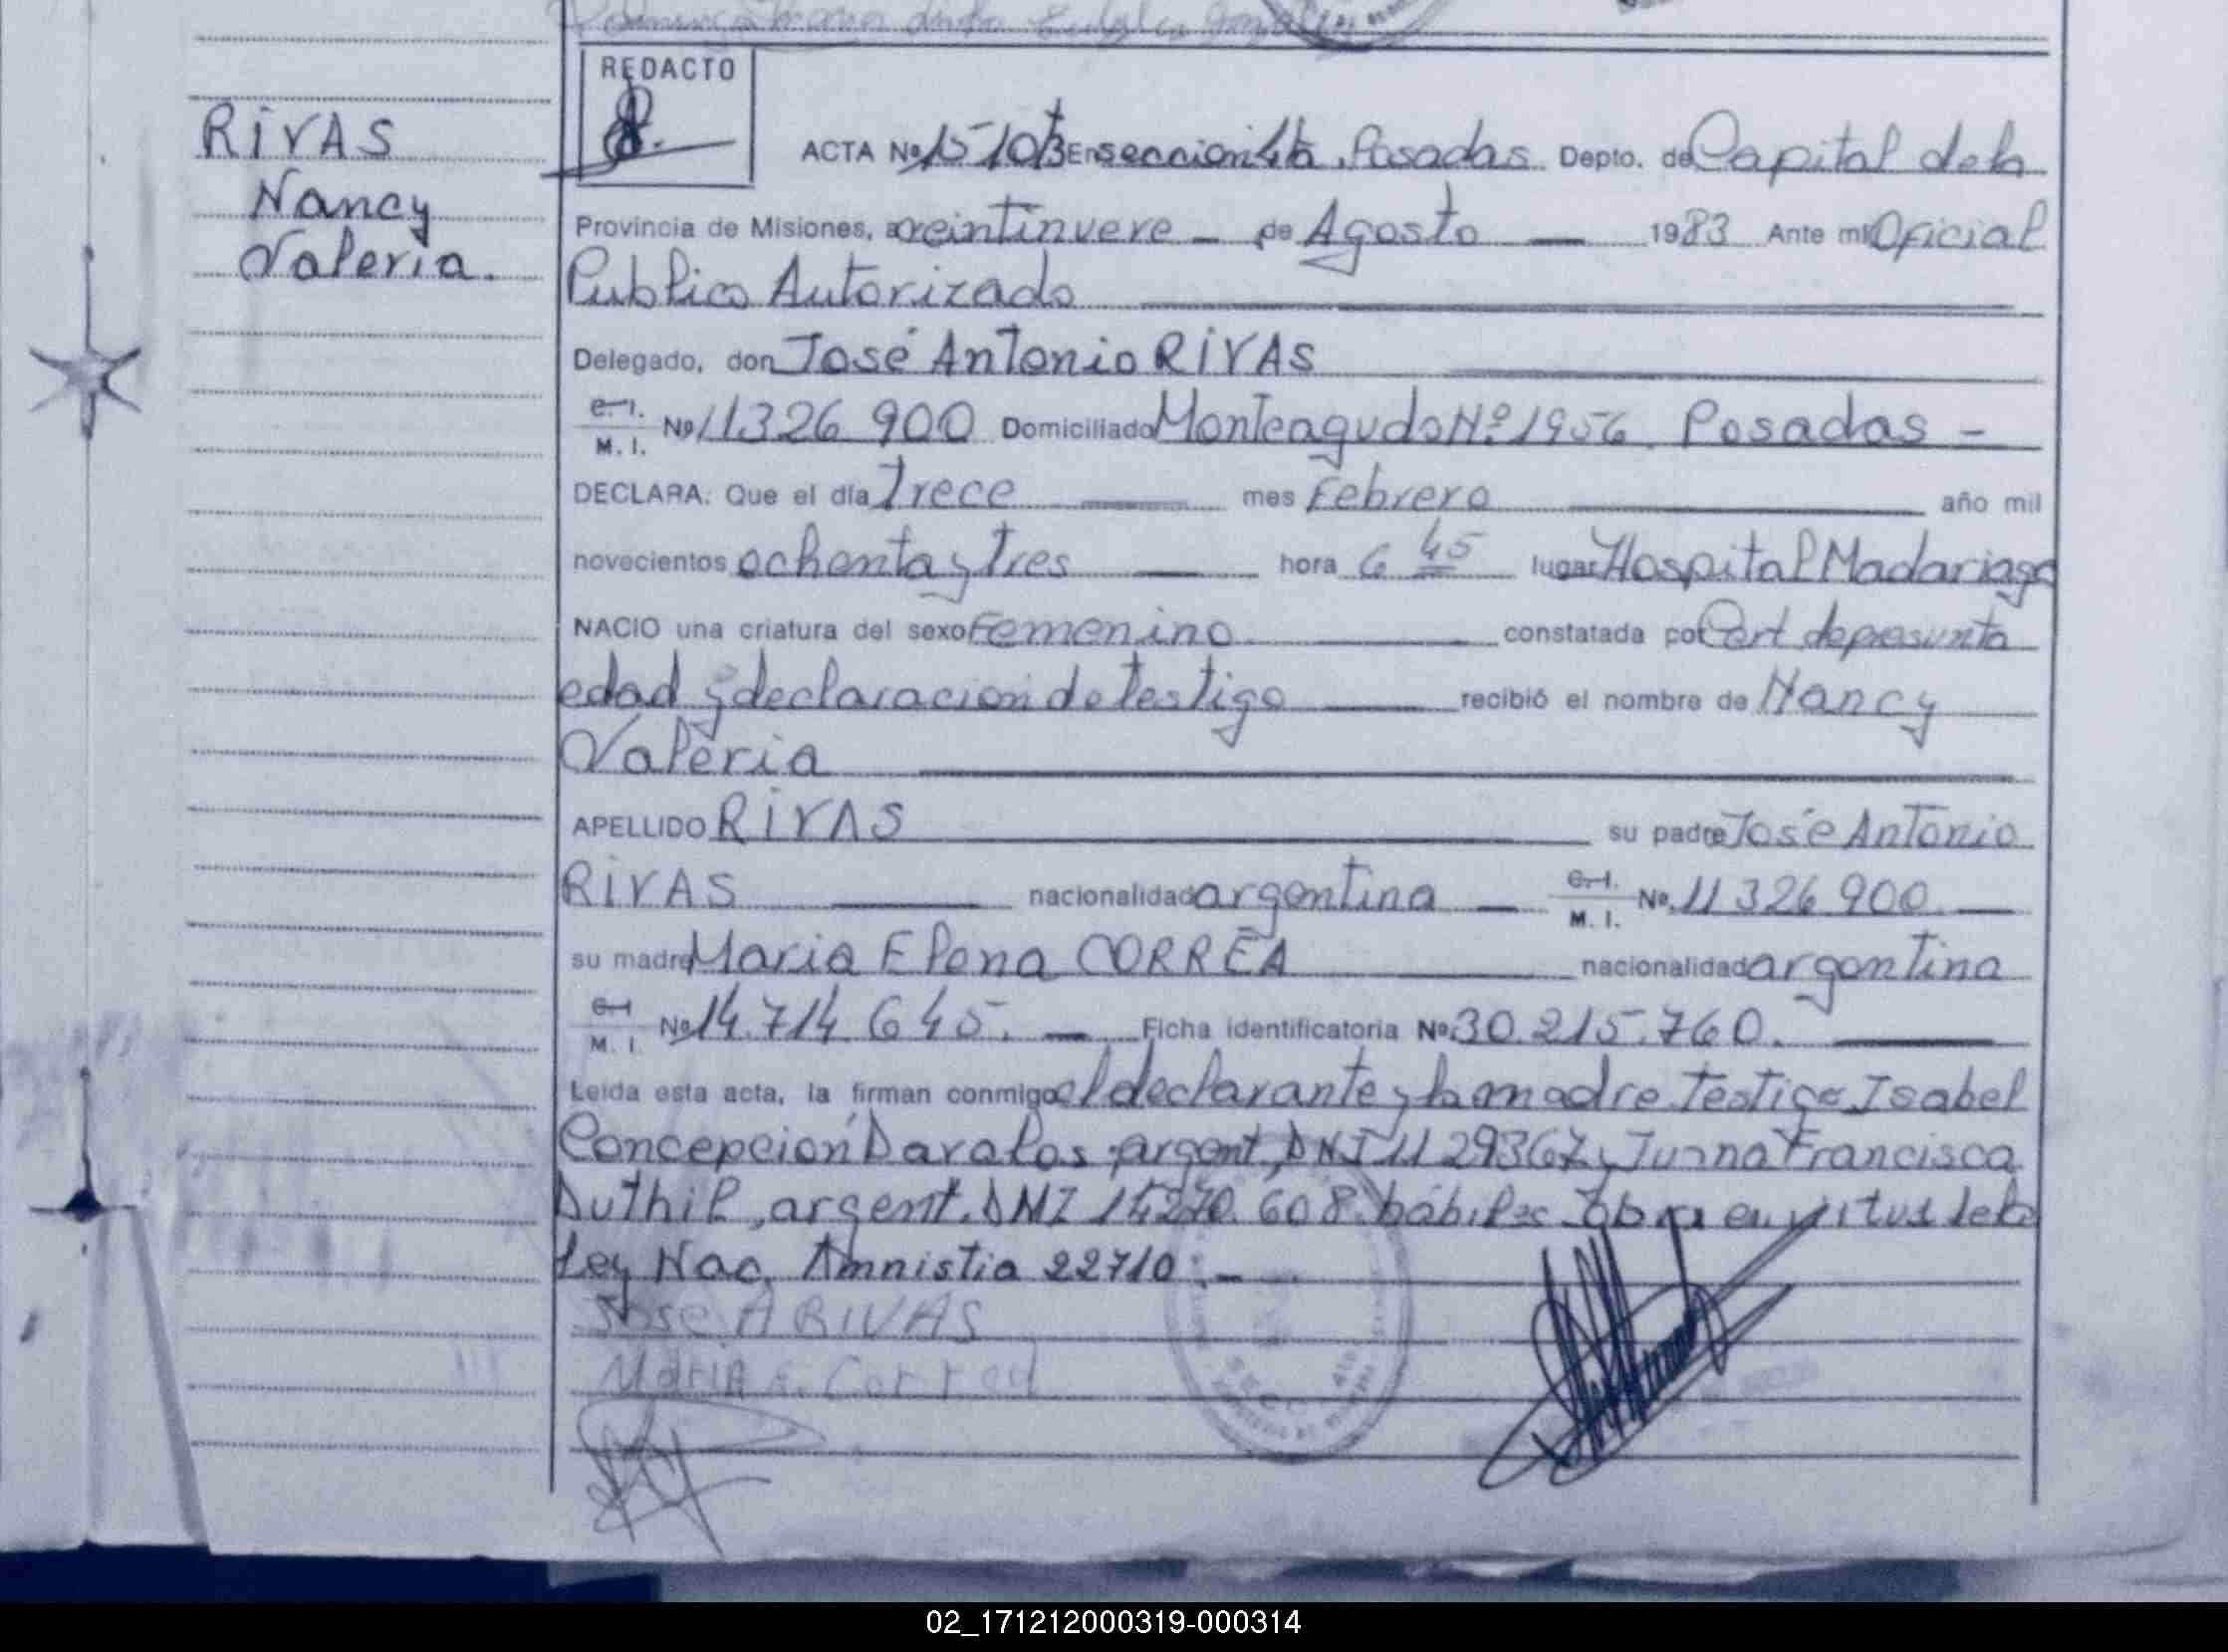 REDACTO
RIVAS
Nancy
Valeria.
ACTA Nº 1510 En seccion 4ta, Posadas Depto. de Capital de la
Provincia de Misiones, a veintinueve — de Agosto — 1983 Ante mi Oficial
Publico Autorizado
Delegado, don José Antonio RIVAS
C.I. M.I. Nº 11326 900 Domiciliado Monteagudo Nº 1956. Posadas -
DECLARA: Que el día Trece mes Febrero año mil
novecientos ochenta y tres — hora 6 45 lugar Hospital Madariaga
NACIO una criatura del sexo Femenino constatada por Cert de presunta
edad y declaracion de testigo recibió el nombre de Nancy
Valeria
APELLIDO RIVAS su padre José Antonio
RIVAS nacionalidad argentina — C.I. M.I. Nº 11 326 900. —
su madre Maria Elena CORRĒA nacionalidad argentina
C.I. M.I. Nº 14.714.645. — Ficha identificatoria Nº 30.215.760.
Leida esta acta, la firman conmigo el declarante y la madre testigo Isabel
Concepción Davalos argent, DNI y Juana Francisca
Duthil, argent. DNI 608 hábiles la
Ley Nac. Amnistia 22710 . -
Jose A RIVAS
Maria E. Correa
SECC. 4ta
02_171212000319-000314